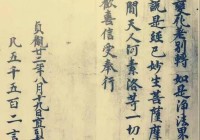 別轉 如是淨法界
說是經已妙生菩薩摩
間天人阿素洛等一切
歡喜信受奉行
貞觀廿二年八月十九日直
凡五千五百二言